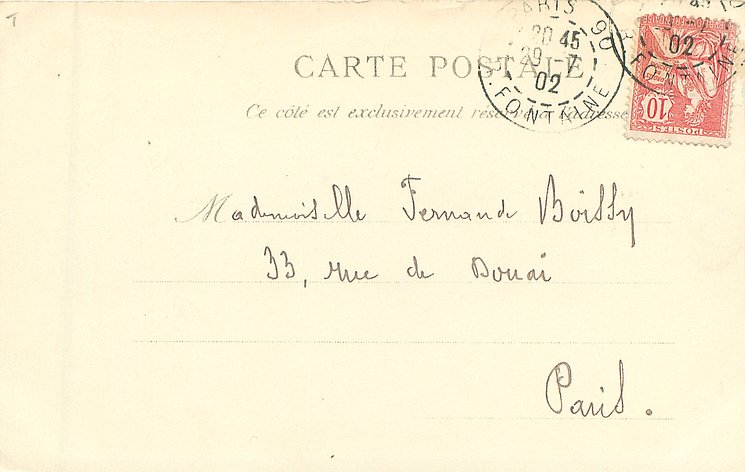 CARTE POSTALE
Ce côté est exclusivement réservé à l'adresse
PARIS 90
20 45
29 -7
02
R. FONTAINE
02
10
POSTES
Mademoiselle Fernande Boissy
33, rue de Douai
Paris.